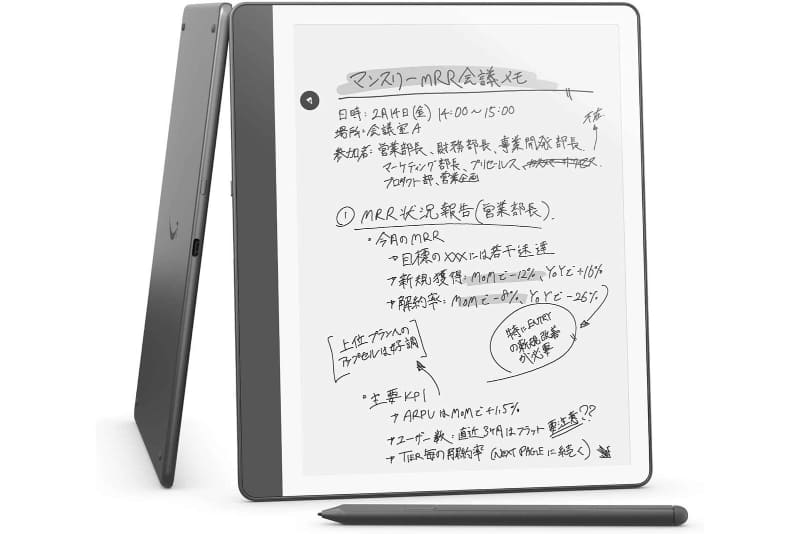 マンスリーMRR会議メモ
日時:2月14日(金) 14:00〜15:00
場所:会議室A
参加者:営業部長、財務部長、事業開発部長、
マーケティング部長、プリセールス、
プロダクト部、営業企画
① MRR状況報告(営業部長)
・今月のMRR
→目標のXXXには若干未達
→新規獲得:MoMで-12%、YoYで+16%
→解約率:MoMで-8%、YoYで-26%
特にENTRY
の新規改善
が必要
上位プランへの
アップセルは好調
・主要KPI
→ARPUはMoMで+1.5%
→ユーザー数:直近3ヶ月はフラット 要注意??
→TIER毎の解約率 (NEXT PAGEに続く)